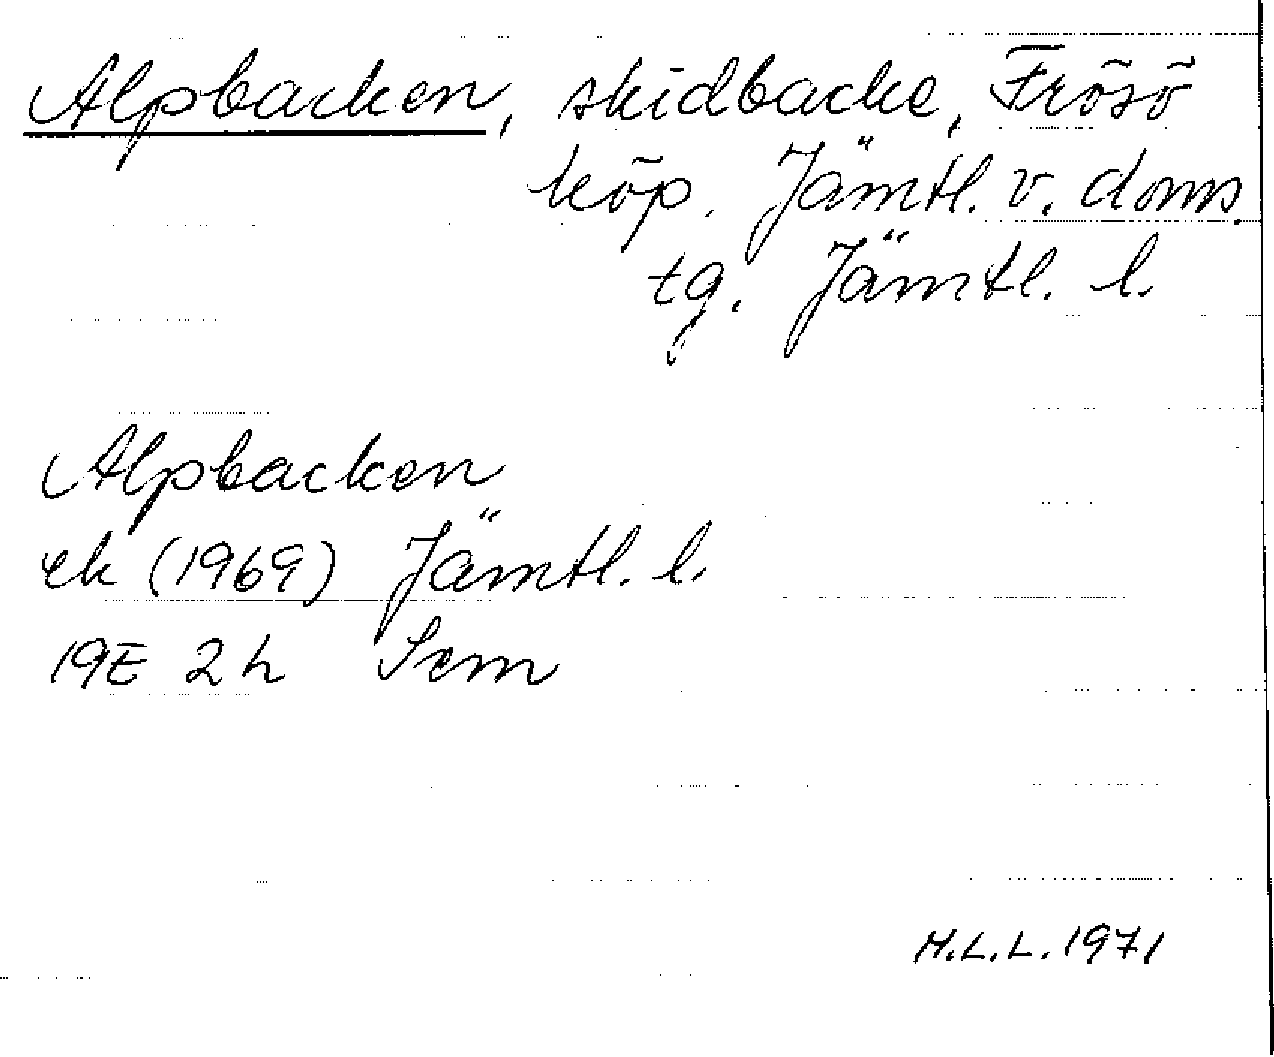 Alpbacken, skidbacke, Frösö
köp. Jämtl. v. doms.
tg. Jämtl. l.
Alpbacken
ek (1969) Jämtl. l.
19E 2h Scm
H.L.L. 1971